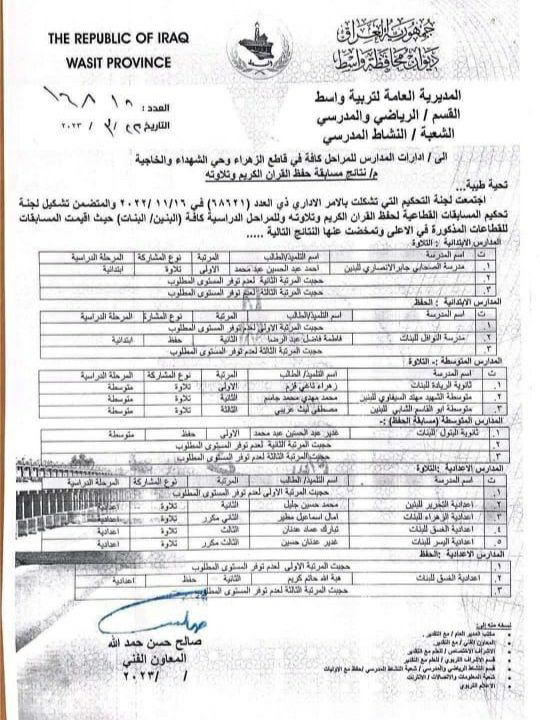 THE REPUBLIC OF IRAQ
WASIT PROVINCE
جمهورية العراق
ديوان محافظة واسط
المديرية العامة لتربية واسط
القسم / الرياضي والمدرسي
الشعبة / النشاط المدرسي
العدد :
التاريخ ٢٢ / ٣ / ٢٠٢٣
الى / ادارات المدارس للمراحل كافة في قاطع الزهراء وحي الشهداء والخاجية
م/ نتائج مسابقة حفظ القران الكريم وتلاوته
تحية طيبة...
اجتمعت لجنة التحكيم التي تشكلت بالامر الاداري ذي العدد (٦٨٦٢١) في ٢٠٢٢/١١/١٦ والمتضمن تشكيل لجنة
تحكيم المسابقات القطاعية لحفظ القران الكريم وتلاوته وللمراحل الدراسية كافة (البنين/ البنات) حيث اقيمت المسابقات
للقاطعات المذكورة في الاعلى وتمخضت عنها النتائج التالية .....
المدارس الابتدائية : التلاوة
ت اسم المدرسة اسم التلميذ/الطالب المرتبة نوع المشاركة المرحلة الدراسية
١. مدرسة الصحابي جابر الانصاري للبنين احمد عبد الحسين عبد محمد الاولى تلاوة ابتدائية
٢. حجبت المرتبة الثانية لعدم توفر المستوى المطلوب
٣. حجبت المرتبة الثالثة لعدم توفر المستوى المطلوب
المدارس الابتدائية : الحفظ
ت اسم المدرسة اسم التلميذ/الطالب المرتبة نوع المشاركة المرحلة الدراسية
١. حجبت المرتبة الاولى لعدم توفر المستوى المطلوب
٢. مدرسة النوافل للبنات فاطمة فاضل عبد الرضا الثانية حفظ ابتدائية
٣. حجبت المرتبة الثالثة لعدم توفر المستوى المطلوب
المدارس المتوسطة :- التلاوة
ت اسم المدرسة اسم التلميذ/ الطالب المرتبة نوع المشاركة المرحلة الدراسية
١. ثانوية الريادة للبنات زهراء الاولى تلاوة متوسطة
٢. متوسطة الشهيد مهند السيفاوي للبنين محمد مهدي محمد جاسم الثانية تلاوة متوسطة
٣. متوسطة ابو القاسم الشابي للبنين مصطفى ليث عريبي الثالثة تلاوة متوسطة
المدارس المتوسطة (مسابقة الحفظ) :-
١. ثانوية البتول للبنات غدير عبد الحسين عبد محمد الاولى حفظ متوسطة
٢. حجبت المرتبة الثانية لعدم توفر المستوى المطلوب
٣. حجبت المرتبة الثالثة لعدم توفر المستوى المطلوب
المدارس الاعدادية :التلاوة
ت اسم المدرسة اسم التلميذ/ الطالب المرتبة نوع المشاركة المرحلة الدراسية
١. حجبت المرتبة الاولى لعدم توفر المستوى المطلوب
٢. اعدادية التحرير للبنين محمد حسين جليل الثاني تلاوة اعدادية
٣. اعدادية الزهراء للبنات امال اسماعيل مطير الثاني مكرر تلاوة اعدادية
٤. اعدادية الغسق للبنات تبارك عماد عدنان الثالث تلاوة اعدادية
٥. اعدادية اليسر للبنات غدير عدنان حسين الثالث مكرر تلاوة اعدادية
المدارس الاعدادية: الحفظ
١. حجبت المرتبة الاولى لعدم توفر المستوى المطلوب
٢. اعدادية الغسق للبنات هبة الله حاتم كريم الثانية حفظ اعدادية
٣. حجبت المرتبة الثالثة لعدم توفر المستوى المطلوب
صالح حسن حمد الله
المعاون الفني
/ /٢٠٢٣
نسخه منه الى:
مكتب المدير العام / مع التقدير.
المعاون الفني / مع التقدير.
الاشراف الاختصاص / للعلم مع التقدير
قسم الاشراف التربوي / للعلم مع التقدير
قسم النشاط الرياضي والمدرسي / شعبة النشاط المدرسي / للحفظ مع الاوليات
شعبة المعلومات والاتصالات / الانترنت
الاعلام التربوي